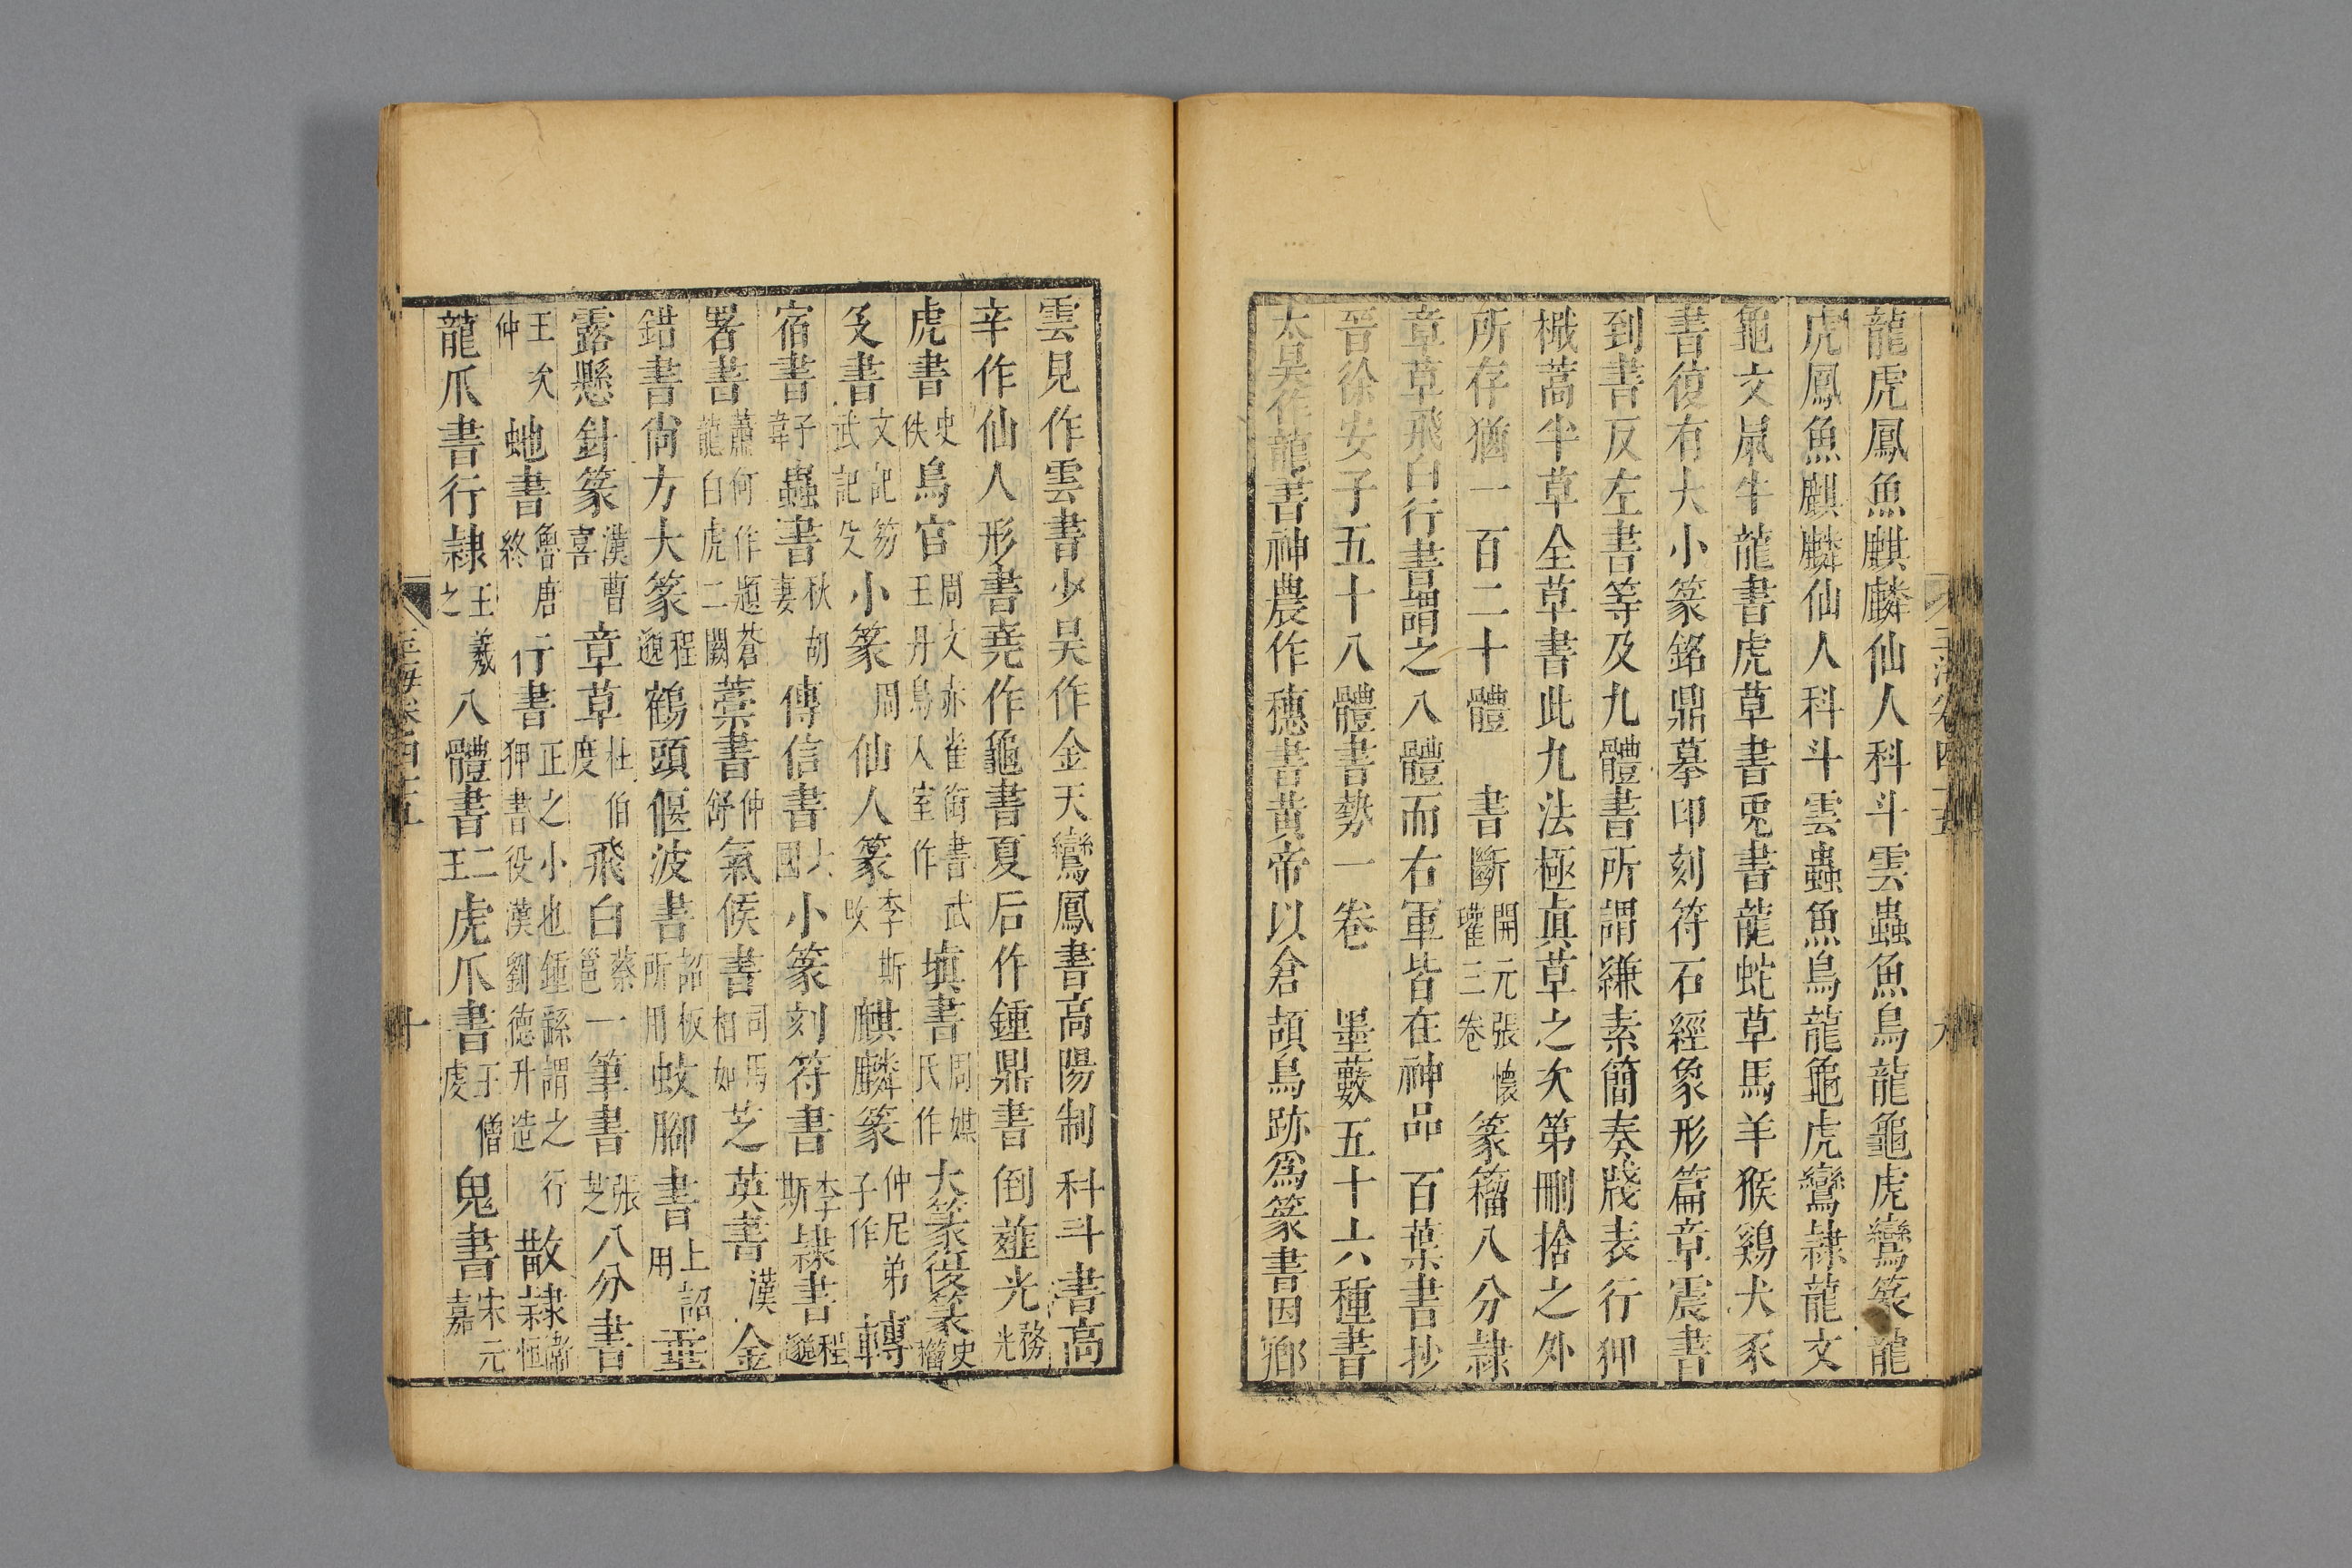 龍虎鳳魚麒麟仙人科斗雲蟲魚鳥龍龜虎鸞篆龍
虎鳳魚麒麟仙人科斗雲蟲魚鳥龍龜虎鸞隷龍文
龜文鼠牛龍書虎草書兎書龍蛇草馬羊猴鷄犬豕
書復有大小篆銘鼎摹印刻符石經象形篇章震書
到書反左書等及九體書所謂縑素簡奏牋表行狎
檄藁半草全草書此九法極眞草之次第刪捨之外
所存猶一百二十體 書斷開元張懷瓘三卷篆籒八分隷
章草草飛白行書謂之八體而右軍皆在神品 百葉書抄
晉徐安子五十八體書勢一卷 墨藪五十六種書
太昊作龍書神農作穗書黃帝以倉頡鳥跡爲篆書因鄉
雲見作雲書少昊作金天鸞鳳書高陽制科斗書高
辛作仙人形書堯作龜書夏后作鍾鼎書倒薤光務光
虎書史佚鳥官周文赤雀銜書武王丹鳥入室作塡書周媒氏作大篆復篆史籒
殳書文記笏武記殳小篆周仙人篆李斯攺麒麟篆仲尼弟子作轉
宿書子韋蟲書秋胡妻傳信書六國小篆刻符書李斯隷書程邈
署書蕭何作題蒼龍白虎二闕藁書仲舒氣候書司馬相如芝英書漢金
錯書尙方大篆程邈鶴頭偃波書詔板所用蚊脚書上詔用垂
露懸針篆漢曹喜章草杜伯度飛白蔡邕一筆書張芝八分書
王次仲虵書魯唐終行書正之小也鍾繇謂之行狎書役漢劉德升造散隷衞恒
龍爪書行隷王羲之八體書二王虎爪書王僧虔鬼書宋元嘉
玉海卷四五
十